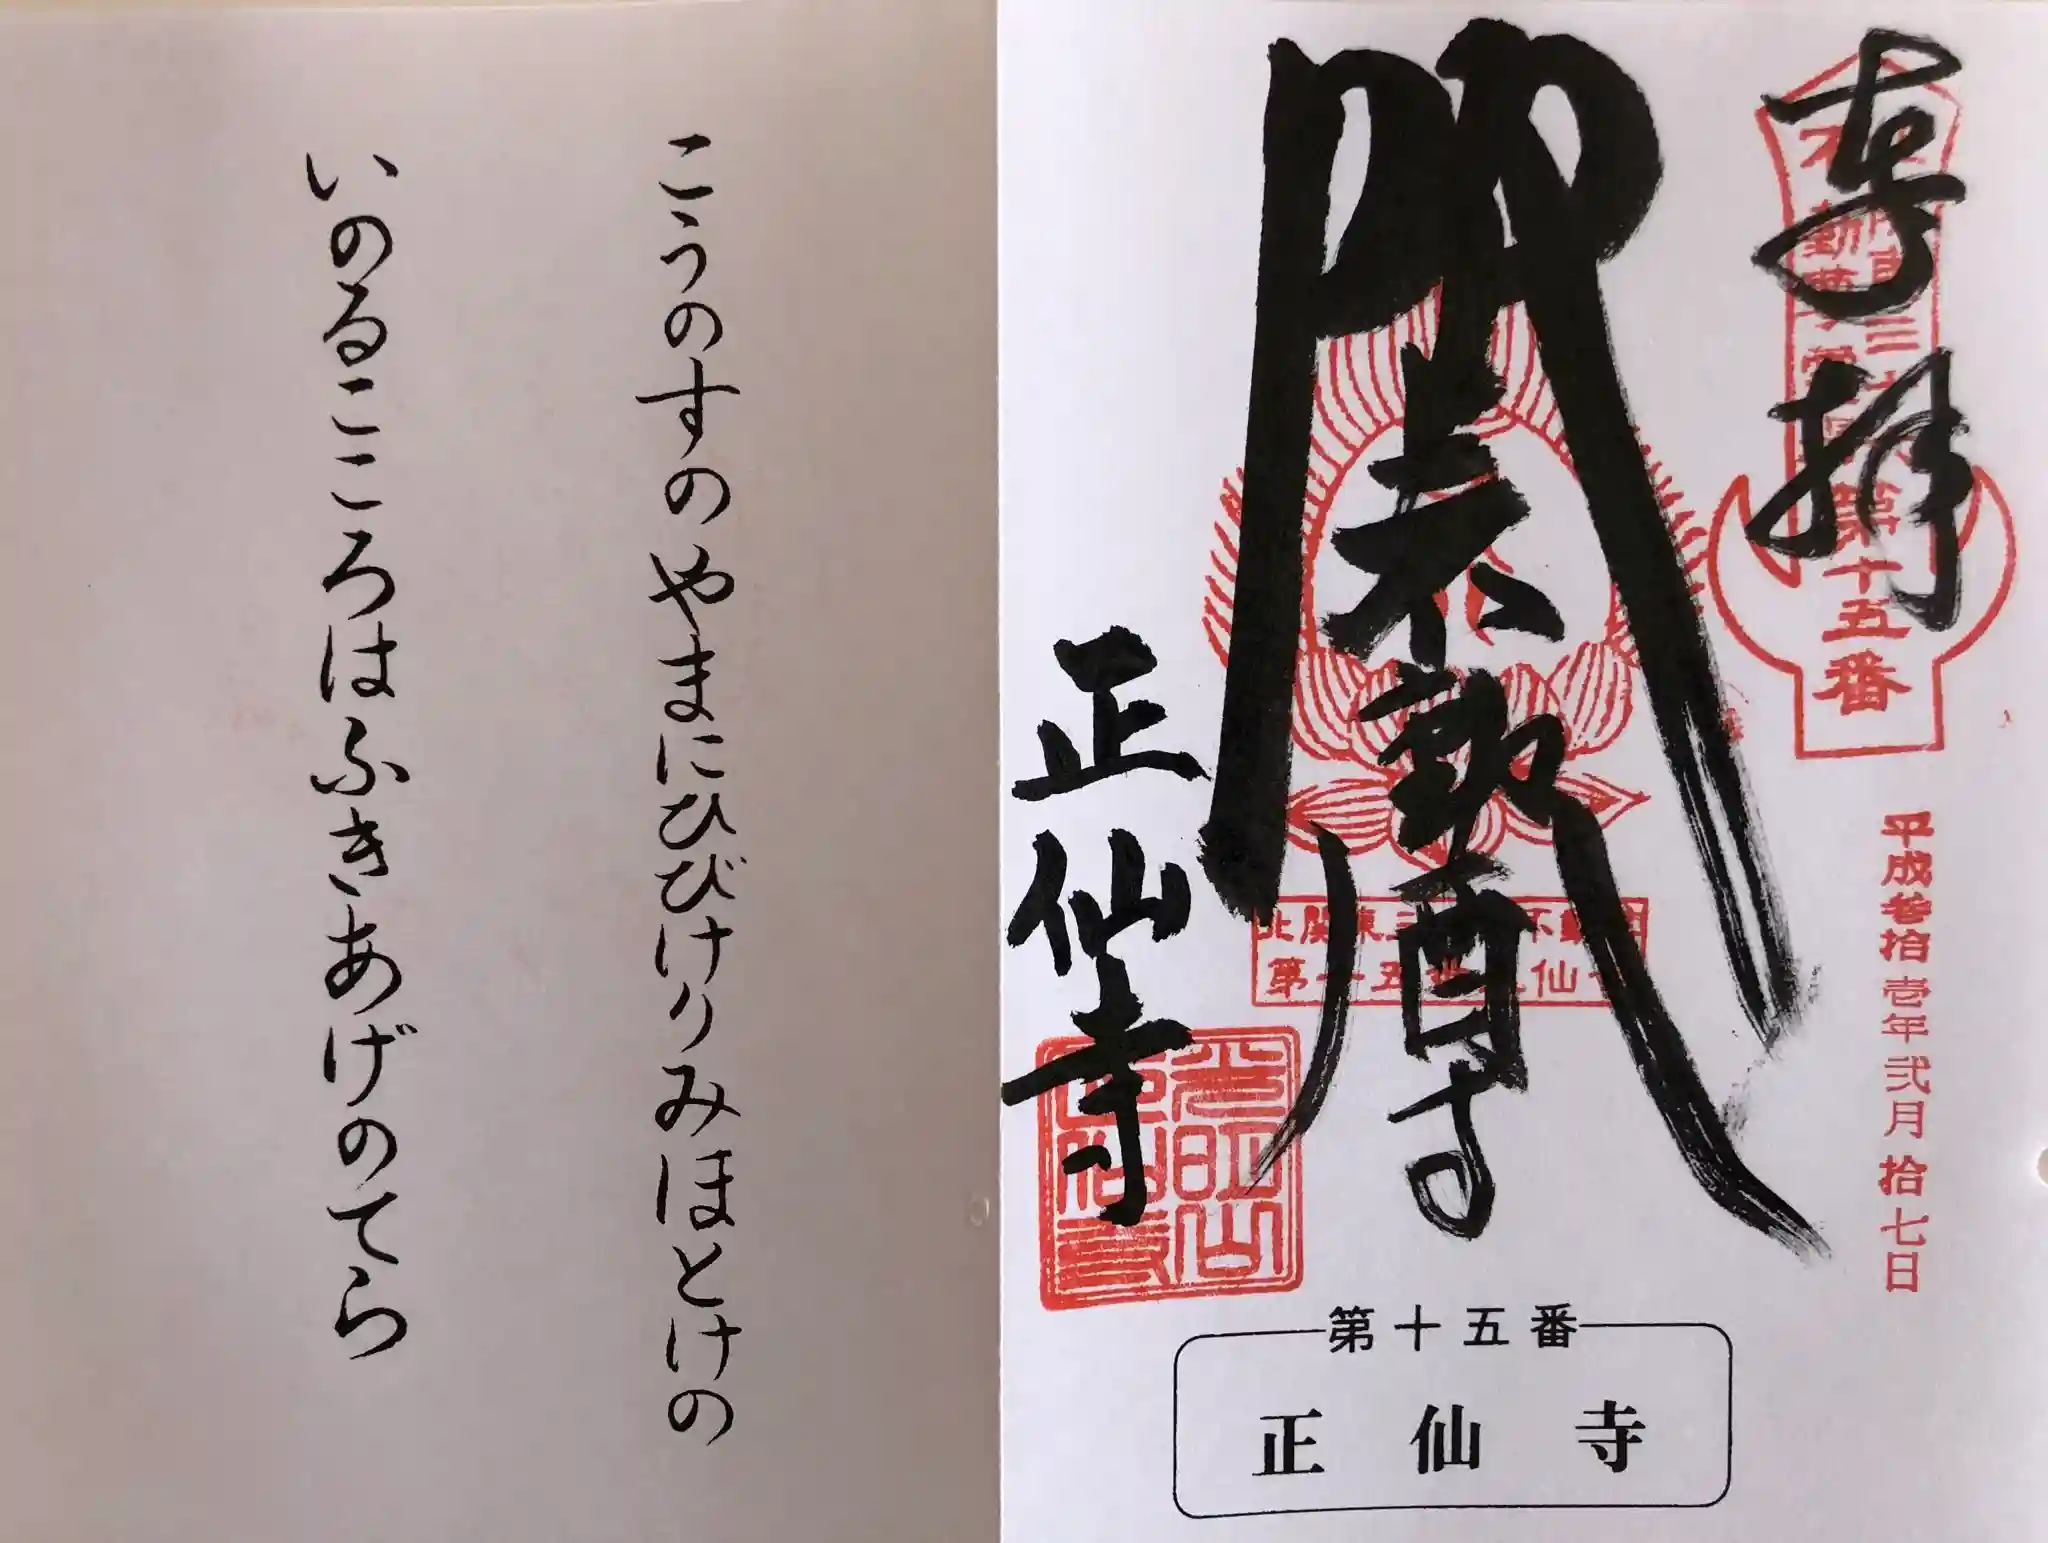 奉拝
不動尊霊場
第十五番
平成参拾壱年弐月拾七日
開 不動尊
北関東三十六不動尊
第十五番正仙寺
正仙寺
光明山正仙寺
第十五番
正仙寺
こうのすの やまにひびけり みほとけの
いのるこころは ふきあげのてら